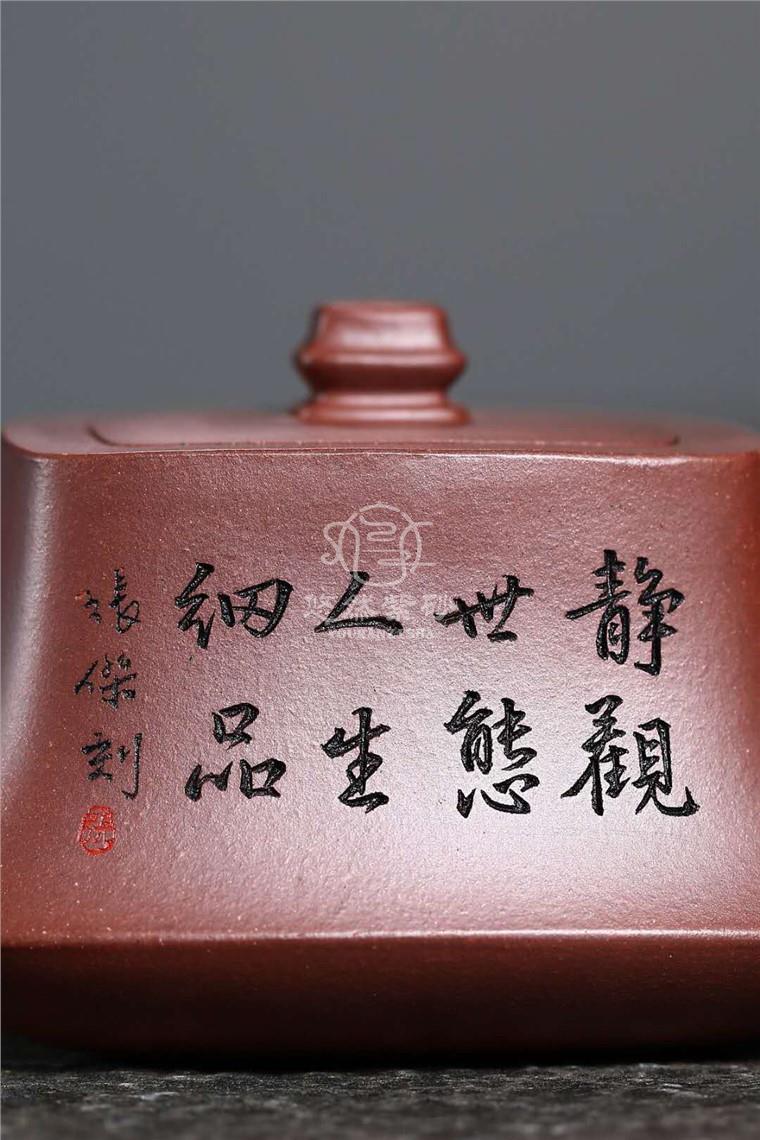 静觀
世態
人生
細品
張傑刻